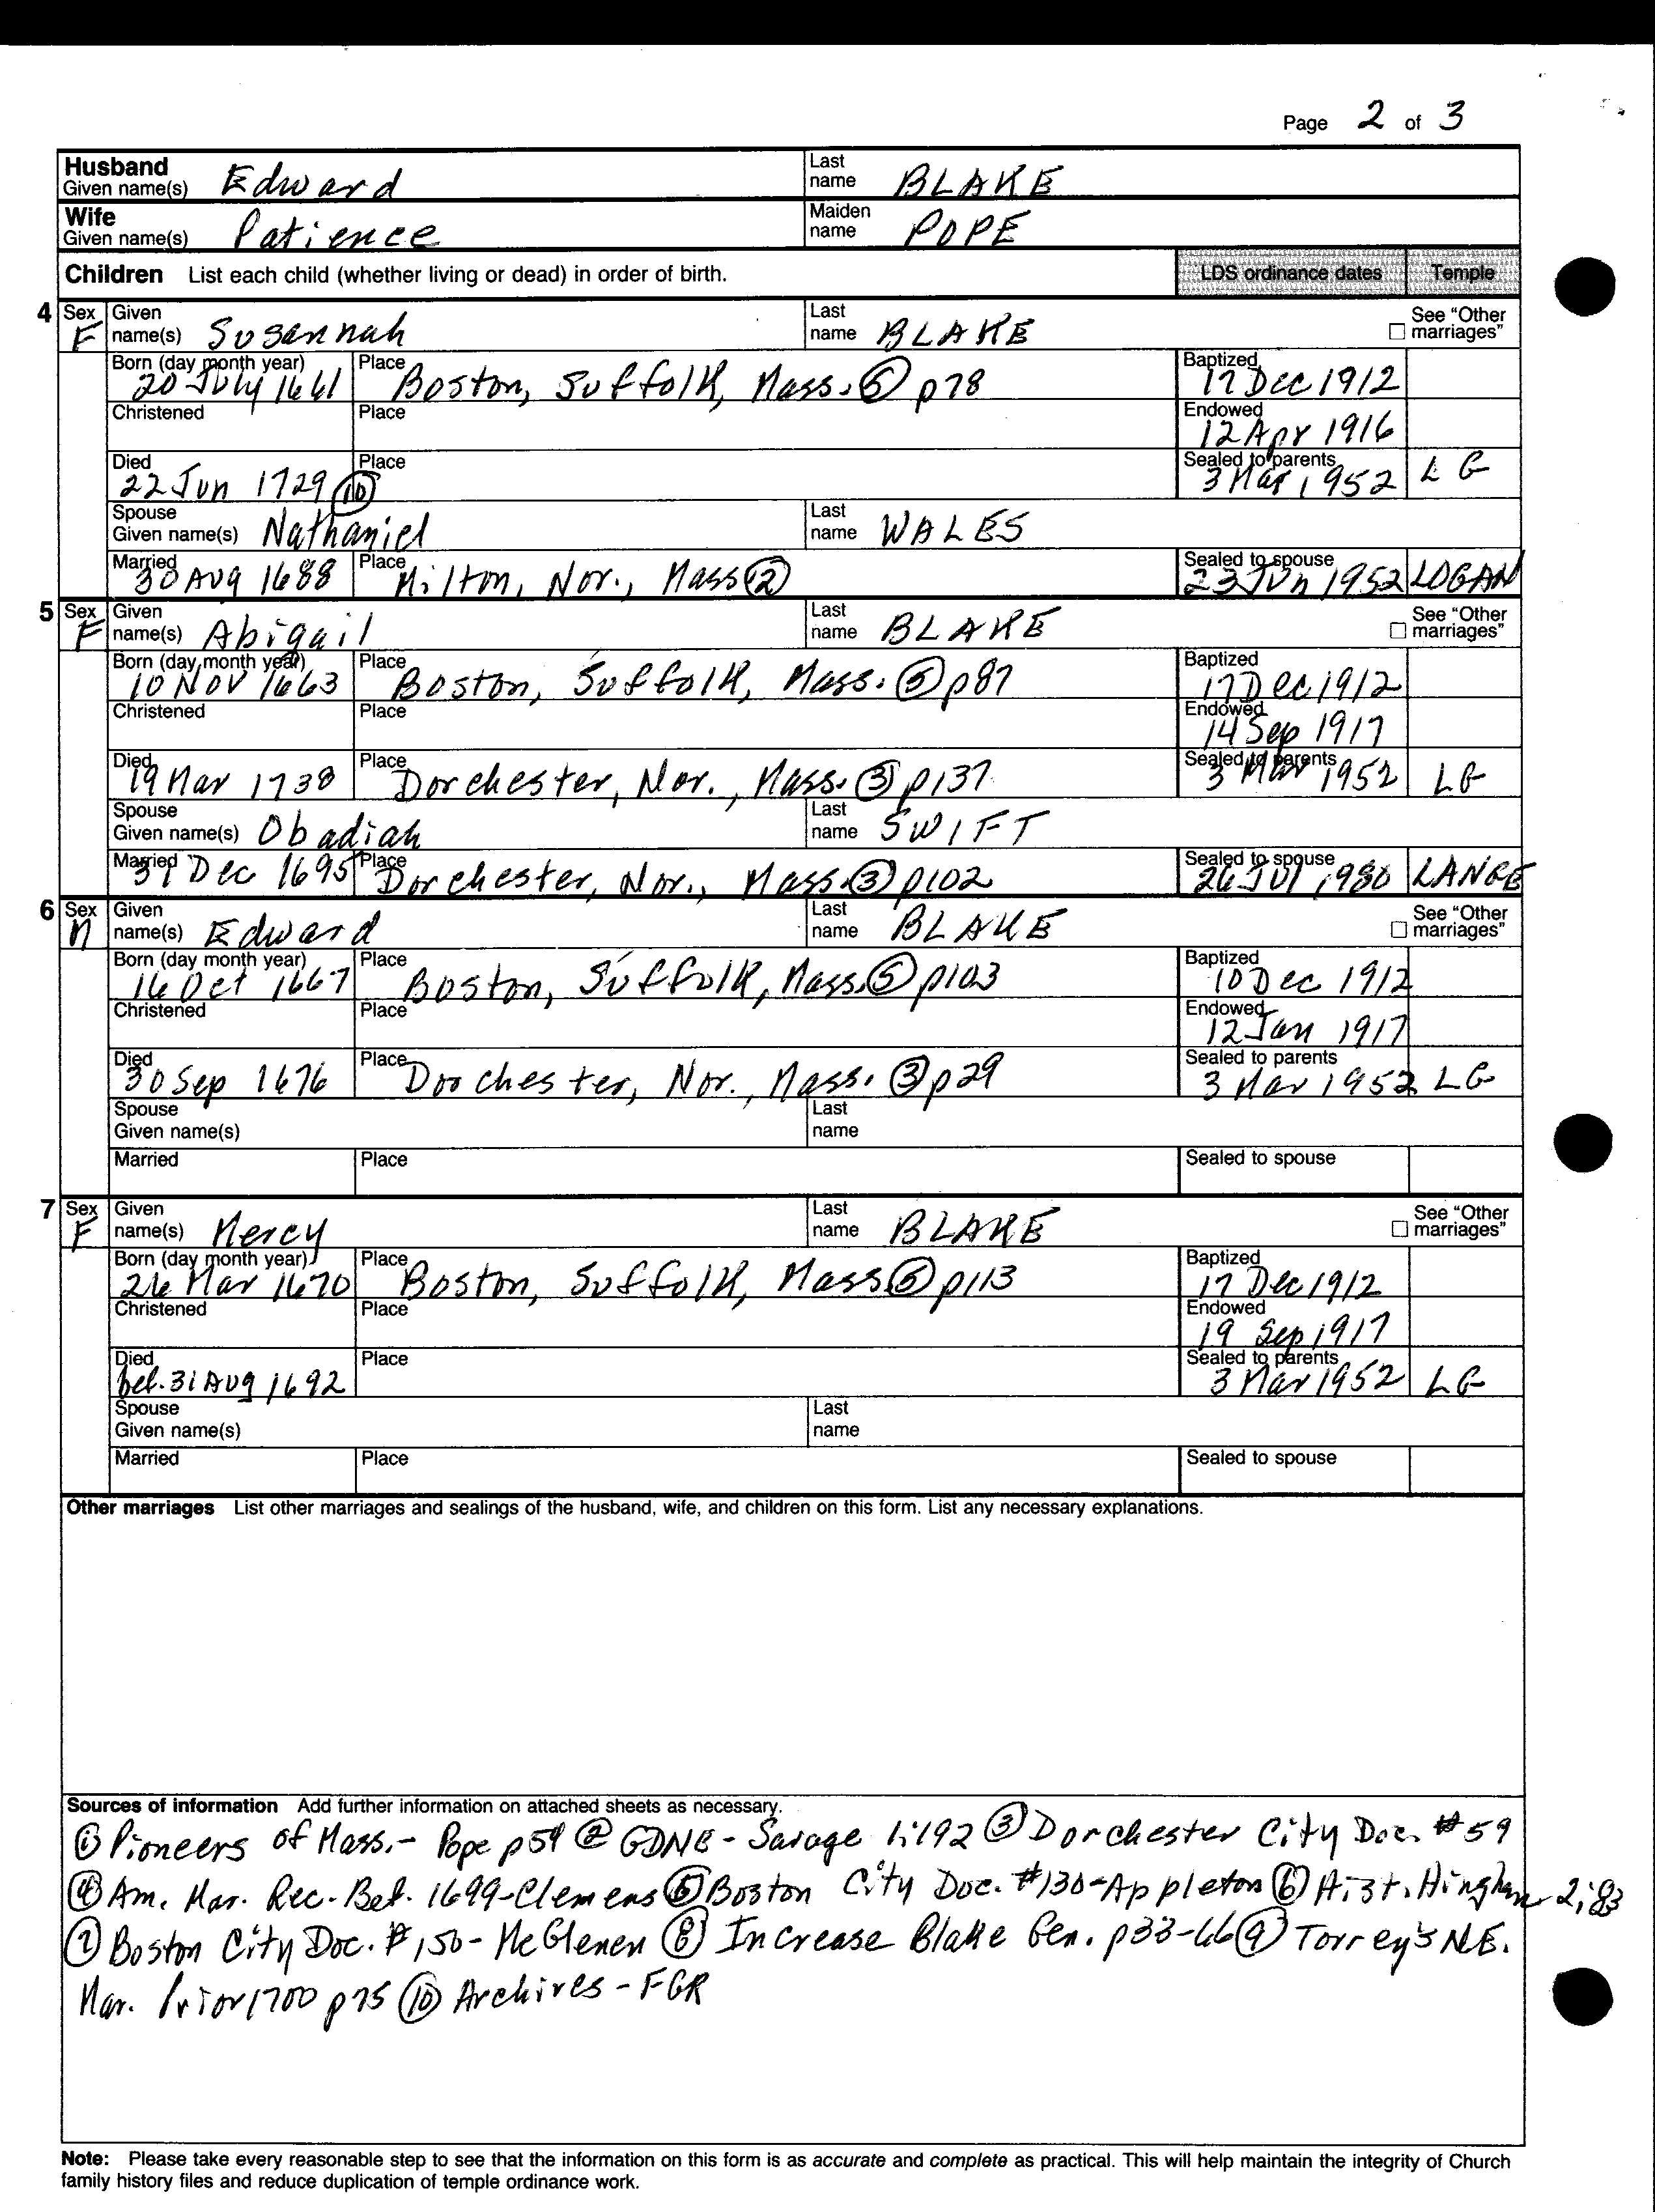 Page 2 of 3
Husband Given name(s) Edward Last name BLAKE
Wife Given name(s) Patience Maiden name POPE
Children List each child (whether living or dead) in order of birth. LDS ordinance dates Temple
4 Sex F Given name(s) Susannah Last name BLAKE See "Other marriages"
Born (day month year) 20 July 1661 Place Boston, Suffolk, Mass. ⑤ p78 Baptized 17 Dec 1912
Christened Place Endowed 12 Apr 1916
Died 22 Jun 1729 ⑩ Place Sealed to parents 3 Mar 1952 LG
Spouse Given name(s) Nathaniel Last name WALES
Married 30 Aug 1688 Place Milton, Nor., Mass ② Sealed to spouse 23 Jun 1952 LOGAN
5 Sex F Given name(s) Abigail Last name BLAKE See "Other marriages"
Born (day month year) 10 NOV 1663 Place Boston, Suffolk, Mass. ⑤ p87 Baptized 17 Dec 1912
Christened Place Endowed 14 Sep 1917
Died 19 Mar 1738 Place Dorchester, Nor., Mass. ③ p137 Sealed to parents 3 Mar 1952 LG
Spouse Given name(s) Obadiah Last name SWIFT
Married 31 Dec 1695 Place Dorchester, Nor., Mass. ③ p102 Sealed to spouse 26 Jul 1980 LANGE
6 Sex M Given name(s) Edward Last name BLAKE See "Other marriages"
Born (day month year) 16 Oct 1667 Place Boston, Suffolk, Mass. ⑤ p103 Baptized 10 Dec 1912
Christened Place Endowed 12 Jan 1917
Died 30 Sep 1676 Place Dorchester, Nor., Mass. ③ p29 Sealed to parents 3 Mar 1952 LG
Spouse Given name(s) Last name
Married Place Sealed to spouse
7 Sex F Given name(s) Mercy Last name BLAKE See "Other marriages"
Born (day month year) 26 Mar 1670 Place Boston, Suffolk, Mass ⑤ p113 Baptized 17 Dec 1912
Christened Place Endowed 19 Sep 1917
Died bef. 31 Aug 1692 Place Sealed to parents 3 Mar 1952 LG
Spouse Given name(s) Last name
Married Place Sealed to spouse
Other marriages List other marriages and sealings of the husband, wife, and children on this form. List any necessary explanations.
Sources of information Add further information on attached sheets as necessary.
① Pioneers of Mass. - Pope p54 ② GDNE - Savage 1:192 ③ Dorchester City Doc. #59
④ Am. Mar. Rec. Bef. 1699-Clemens ⑤ Boston City Doc. #130-Appleton ⑥ Hist. Hingham 2:83
⑦ Boston City Doc. #150 - McGlenen ⑧ Increase Blake Gen. p33-46 ⑨ Torrey's N.E.
Mar. Prior 1700 p75 ⑩ Archives - FGR
Note: Please take every reasonable step to see that the information on this form is as accurate and complete as practical. This will help maintain the integrity of Church
family history files and reduce duplication of temple ordinance work.